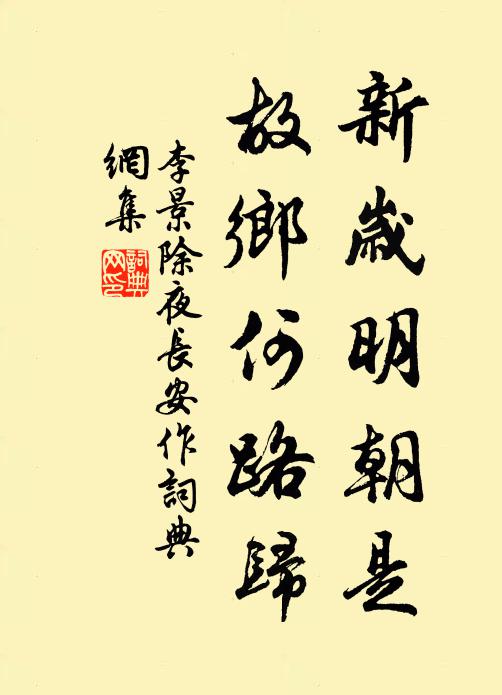 新歲明朝是
故鄉何路歸
李景除夜長安作詞典
網集
詞典
网印